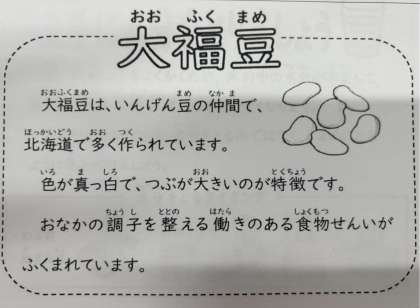 おお ふく まめ
大福豆
おおふくまめ まめ なかま
大福豆は、いんげん豆の仲間で、
ほっかいどう おお つく
北海道で多く作られています。
いろ ま しろ おお とくちょう
色が真っ白で、つぶが大きいのが特徴です。
ちょうし ととの はたら しょくもつ
おなかの調子を整える働きのある食物せんいが
ふくまれています。